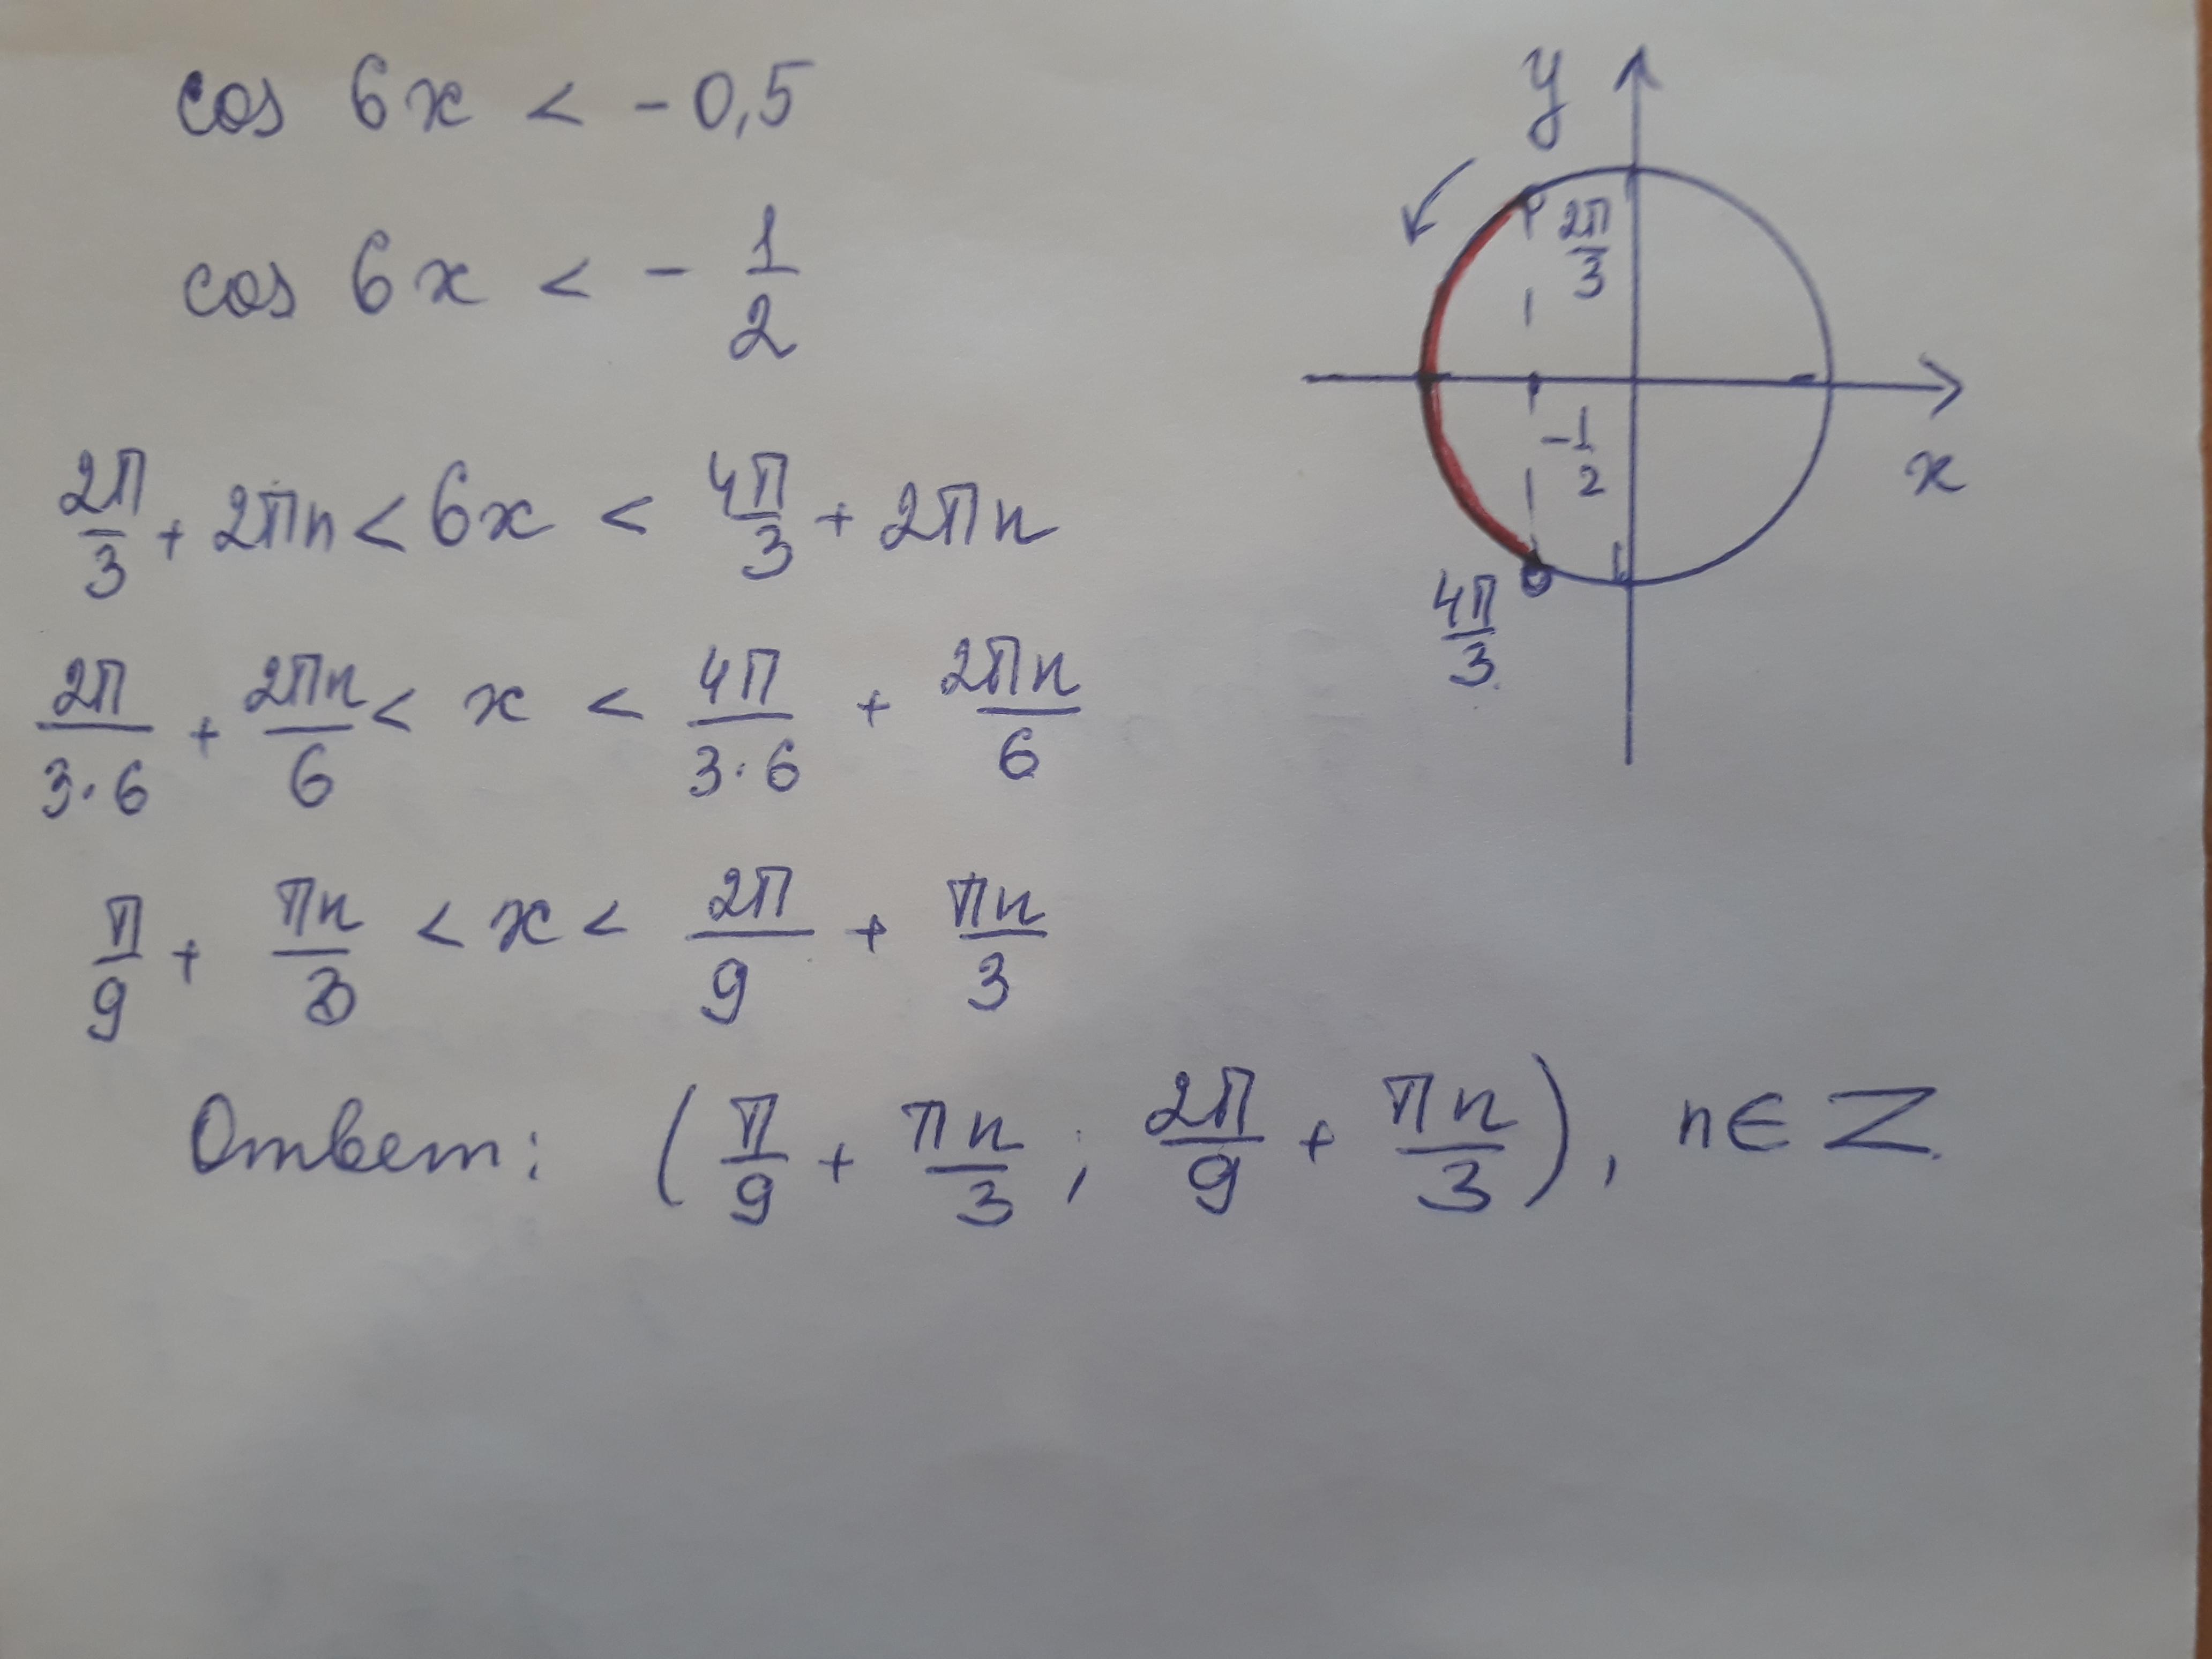 cos 6x < - 0,5
cos 6x < - 1/2
2π/3 + 2πn < 6x < 4π/3 + 2πn
2π/3·6 + 2πn/6 < x < 4π/3·6 + 2πn/6
π/9 + πn/3 < x < 2π/9 + πn/3
Ответ: (π/9 + πn/3 ; 2π/9 + πn/3), n∈Z.
y
2π/3
-1/2
x
4π/3